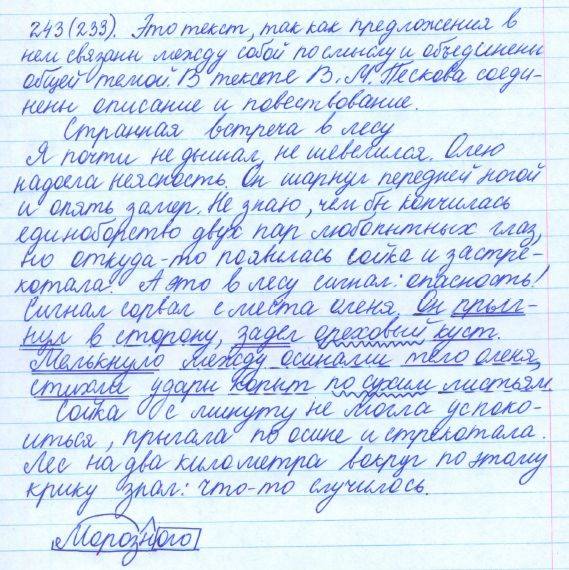 243(233). Это текст, так как предложения в
нем связаны между собой по смыслу и объединены
общей темой. В тексте В. М. Пескова соеди-
нены описание и повествование.
Странная встреча в лесу
Я почти не дышал, не шевелился. Оленю
надоела неясность. Он шаркнул передней ногой
и опять замер. Не знаю, чем бы кончилась
единоборство двух пар любопытных глаз,
но откуда-то появилась сойка и застре-
котала. А это в лесу сигнал: опасность!
Сигнал сорвал с места оленя. Он прыг-
нул в сторону, задел ореховый куст.
Мелькнуло между осинами тело оленя,
стихли удары копыт по сухим листьям.
Сойка с минуту не могла успоко-
иться, прыгала по осине и стрекотала.
Лес на два километра вокруг по этому
крику знал: что-то случилось.
Морозного